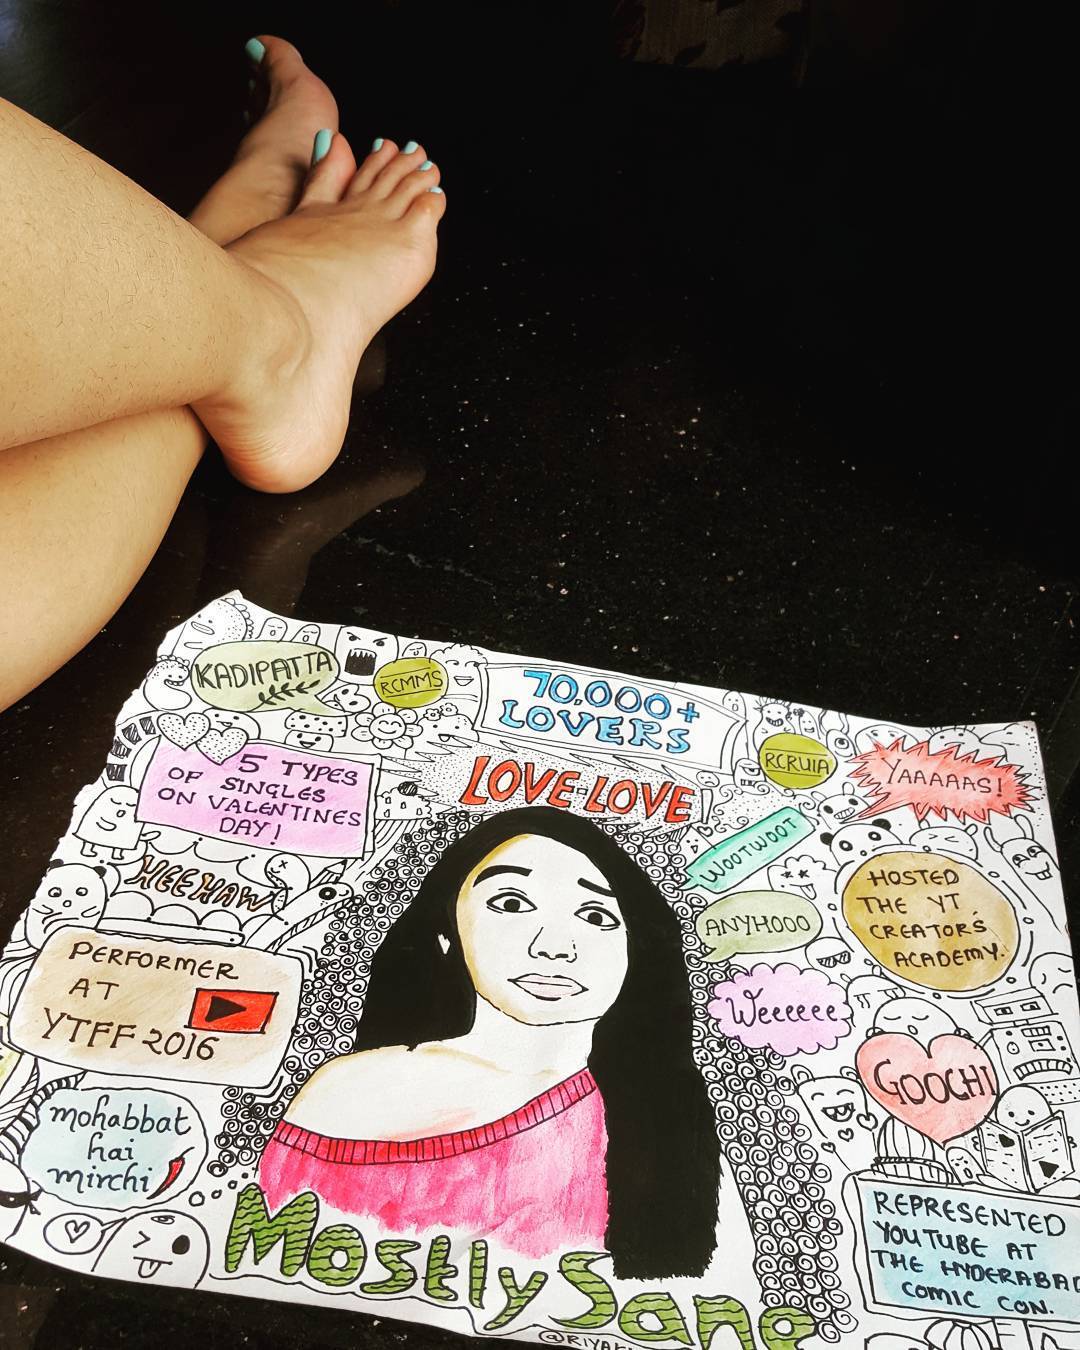 KADIPATTA
RCMMS
70,000+
LOVERS
LOVE-LOVE!
RCRUIA
YAAAAAS!
5 TYPES
OF SINGLES
ON VALENTINES
DAY!
WOOTWOOT
HEEHAW
ANYHOOO
HOSTED
THE YT
CREATOR'S
ACADEMY.
PERFORMER
AT
YTFF 2016
Weeeeee
GOOCHI
mohabbat
hai
mirchi
REPRESENTED
YOUTUBE AT
THE HYDERABAD
COMIC CON.
MostlySane